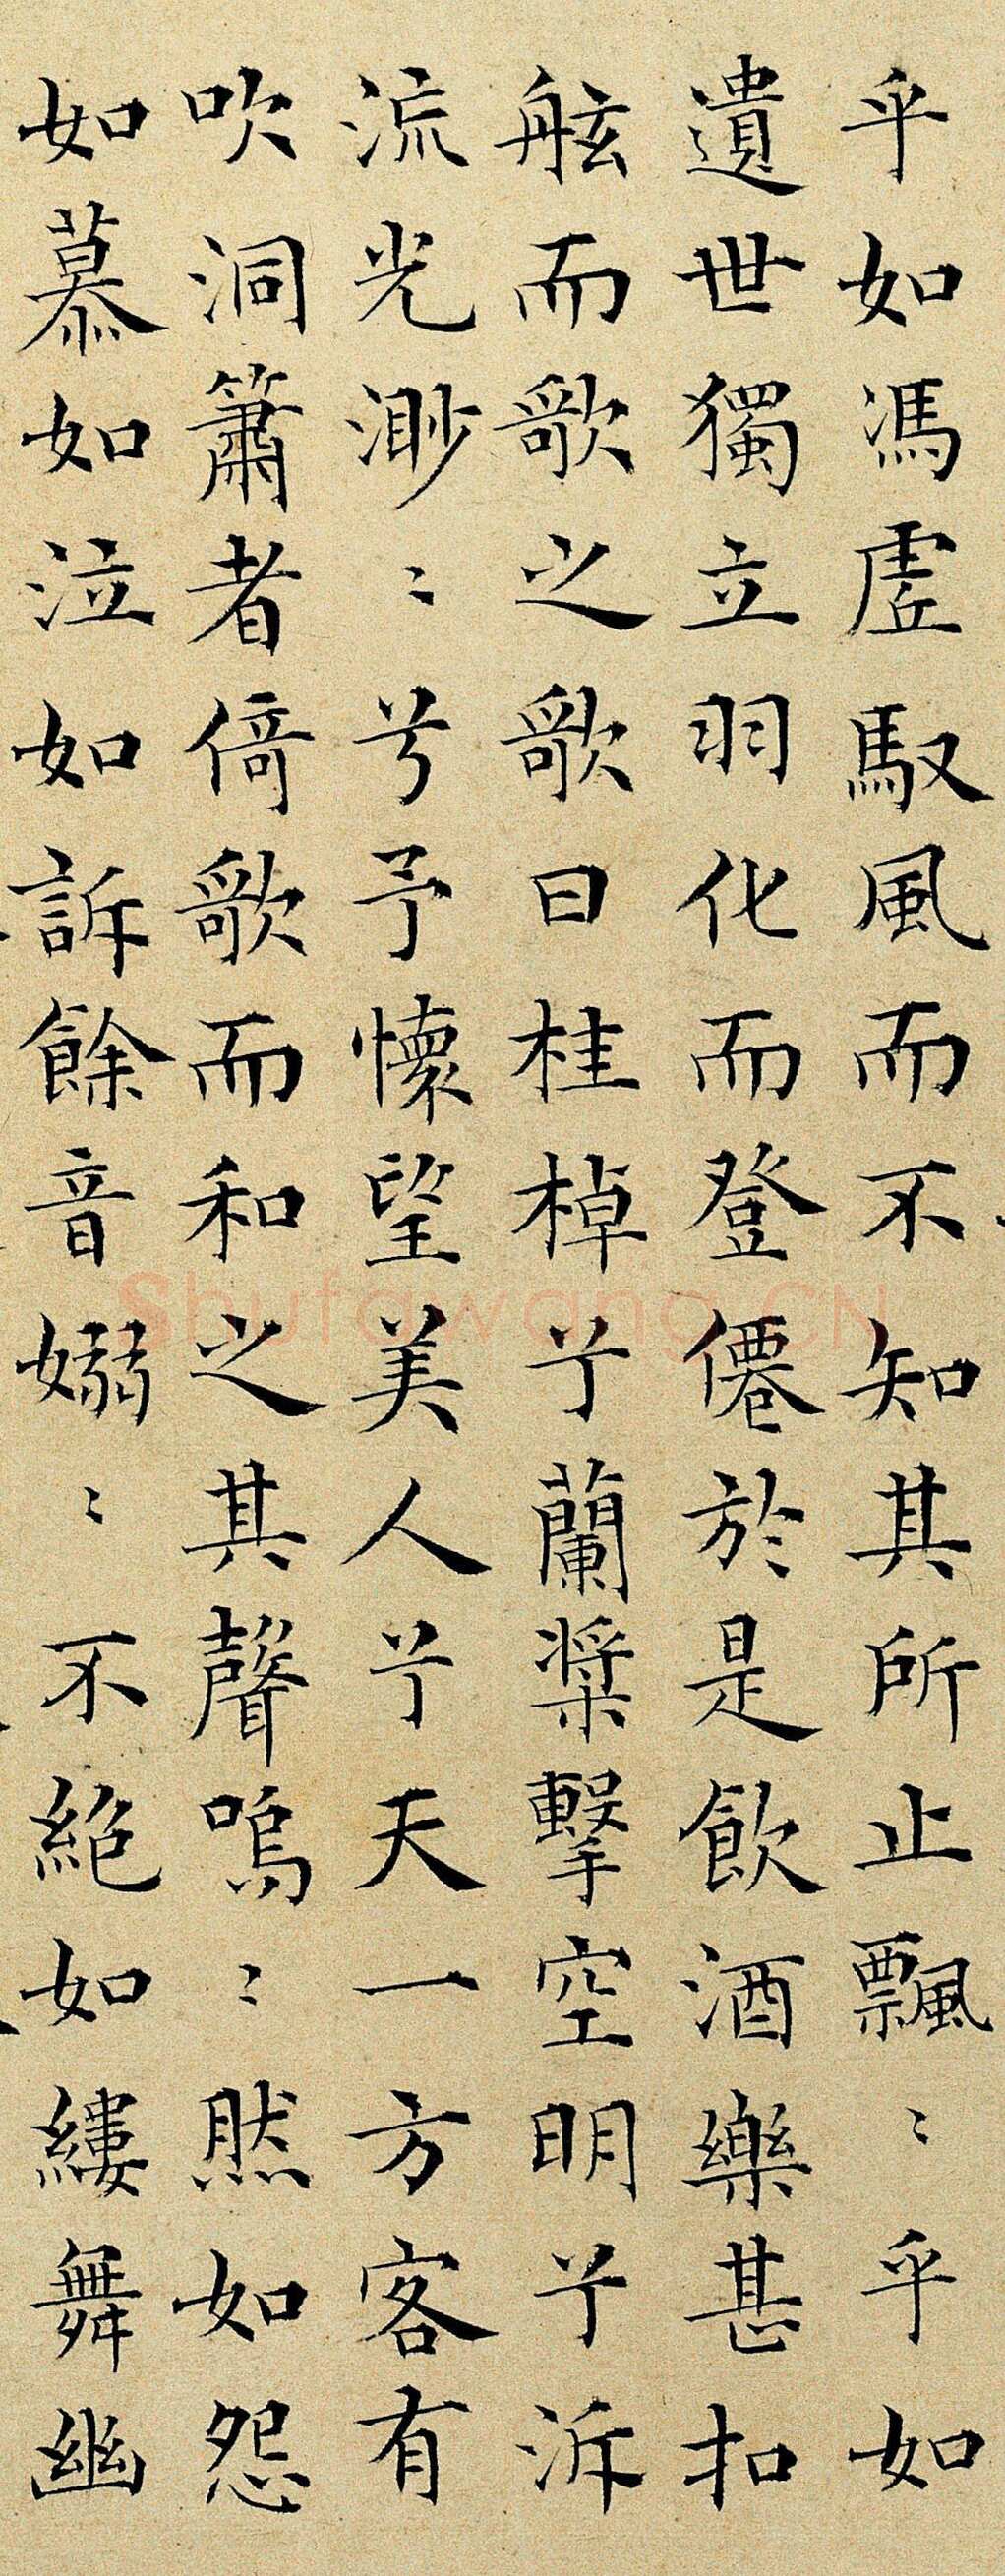 乎如馮虛馭風而不知其所止飄〻乎如
遺世獨立羽化而登僊於是飲酒樂甚扣
舷而歌之歌曰桂棹兮蘭槳擊空明兮泝
流光渺〻兮予懷望美人兮天一方客有
吹洞簫者倚歌而和之其聲嗚〻然如怨
如慕如泣如訴餘音嫋〻不絕如縷舞幽
Shufawang.CN